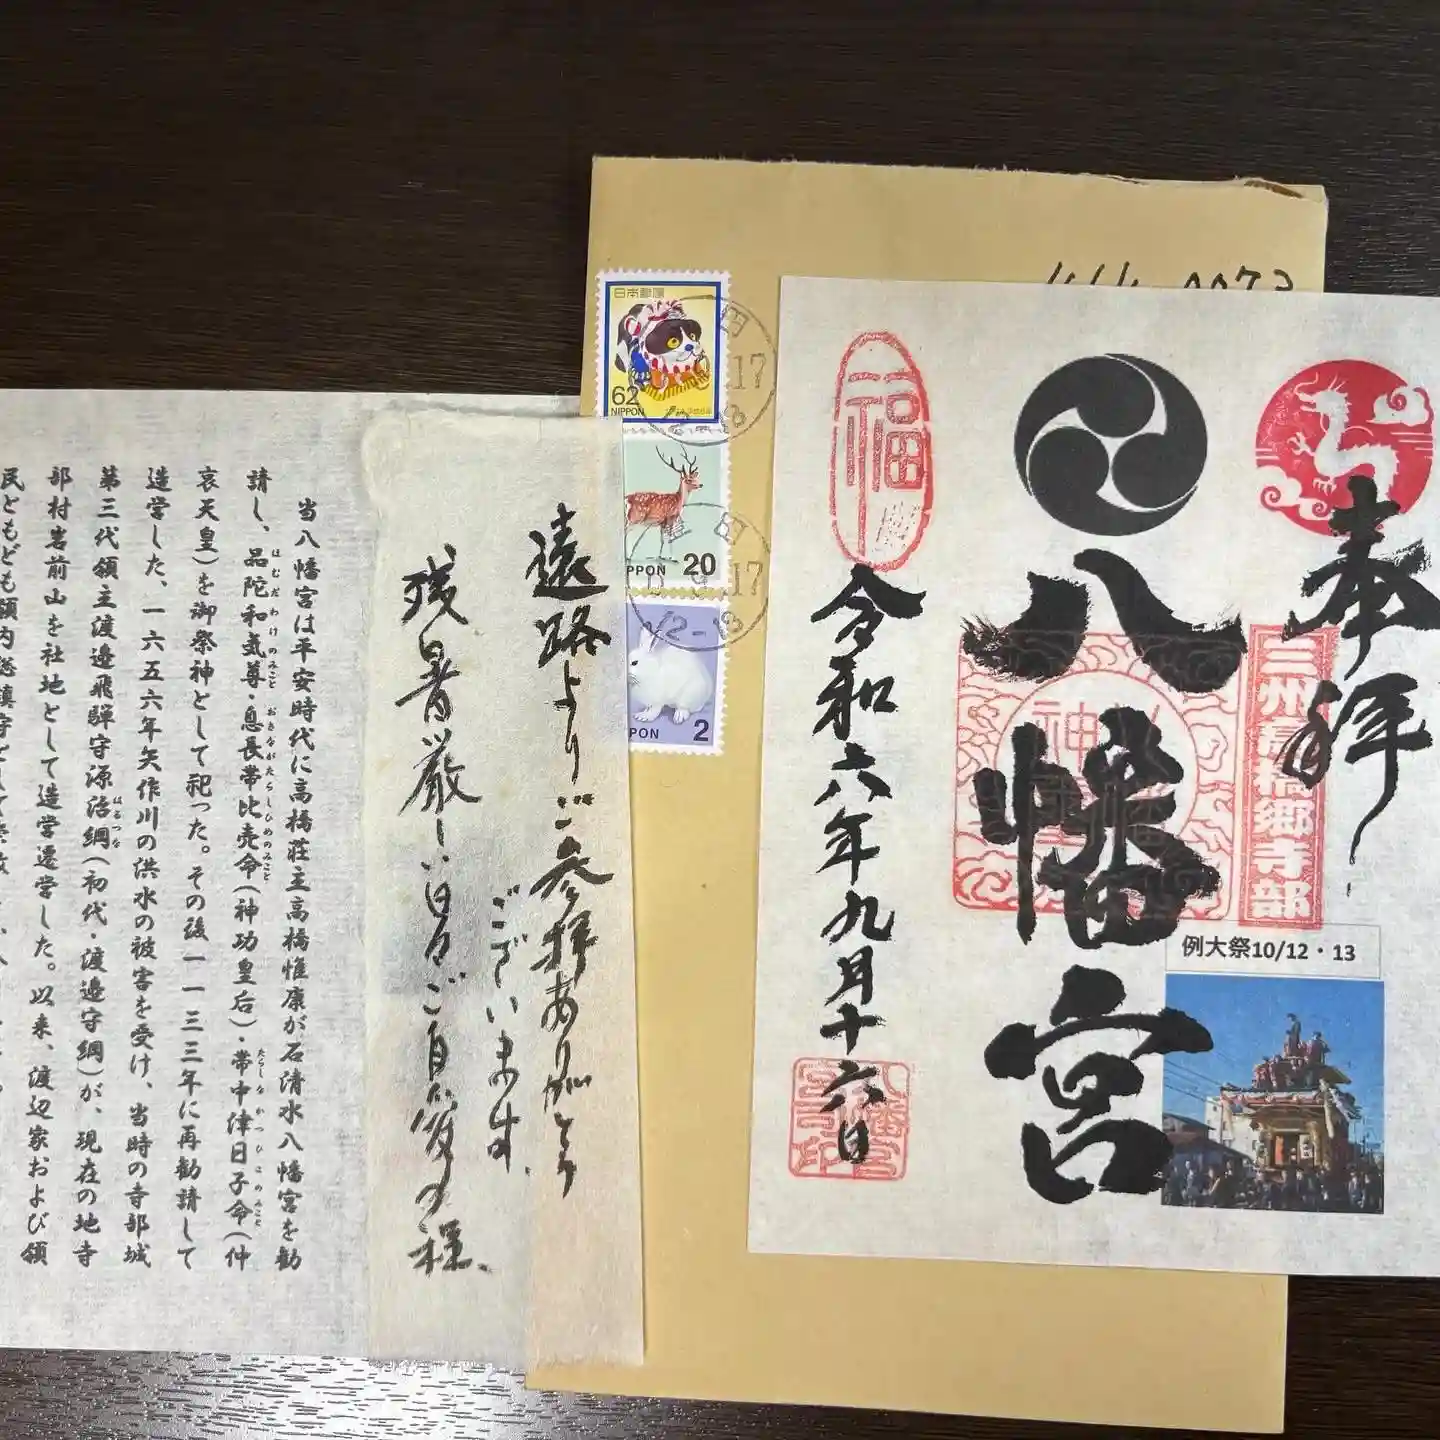 奉拝
三州高橋郷寺部
八幡宮
例大祭10/12・13
福
令和六年九月十六日
日本郵便
62
NIPPON
20
2
17
17
遠路よりご参拝ありがとう
ございます。
残暑厳しい日々ご自愛の程、
当八幡宮は平安時代に高橋荘主高橋惟康が石清水八幡宮を勧
請し、品陀和気尊・息長帯比売命(神功皇后)・帯中津日子命(仲
哀天皇)を御祭神として祀った。その後一一三三年に再勧請して
造営した、一六五六年矢作川の洪水の被害を受け、当時の寺部城
第三代領主渡邉飛騨守源治綱(初代・渡邉守綱)が、現在の地寺
部村岩前山を社地として造営遷営した。以来、渡辺家および領